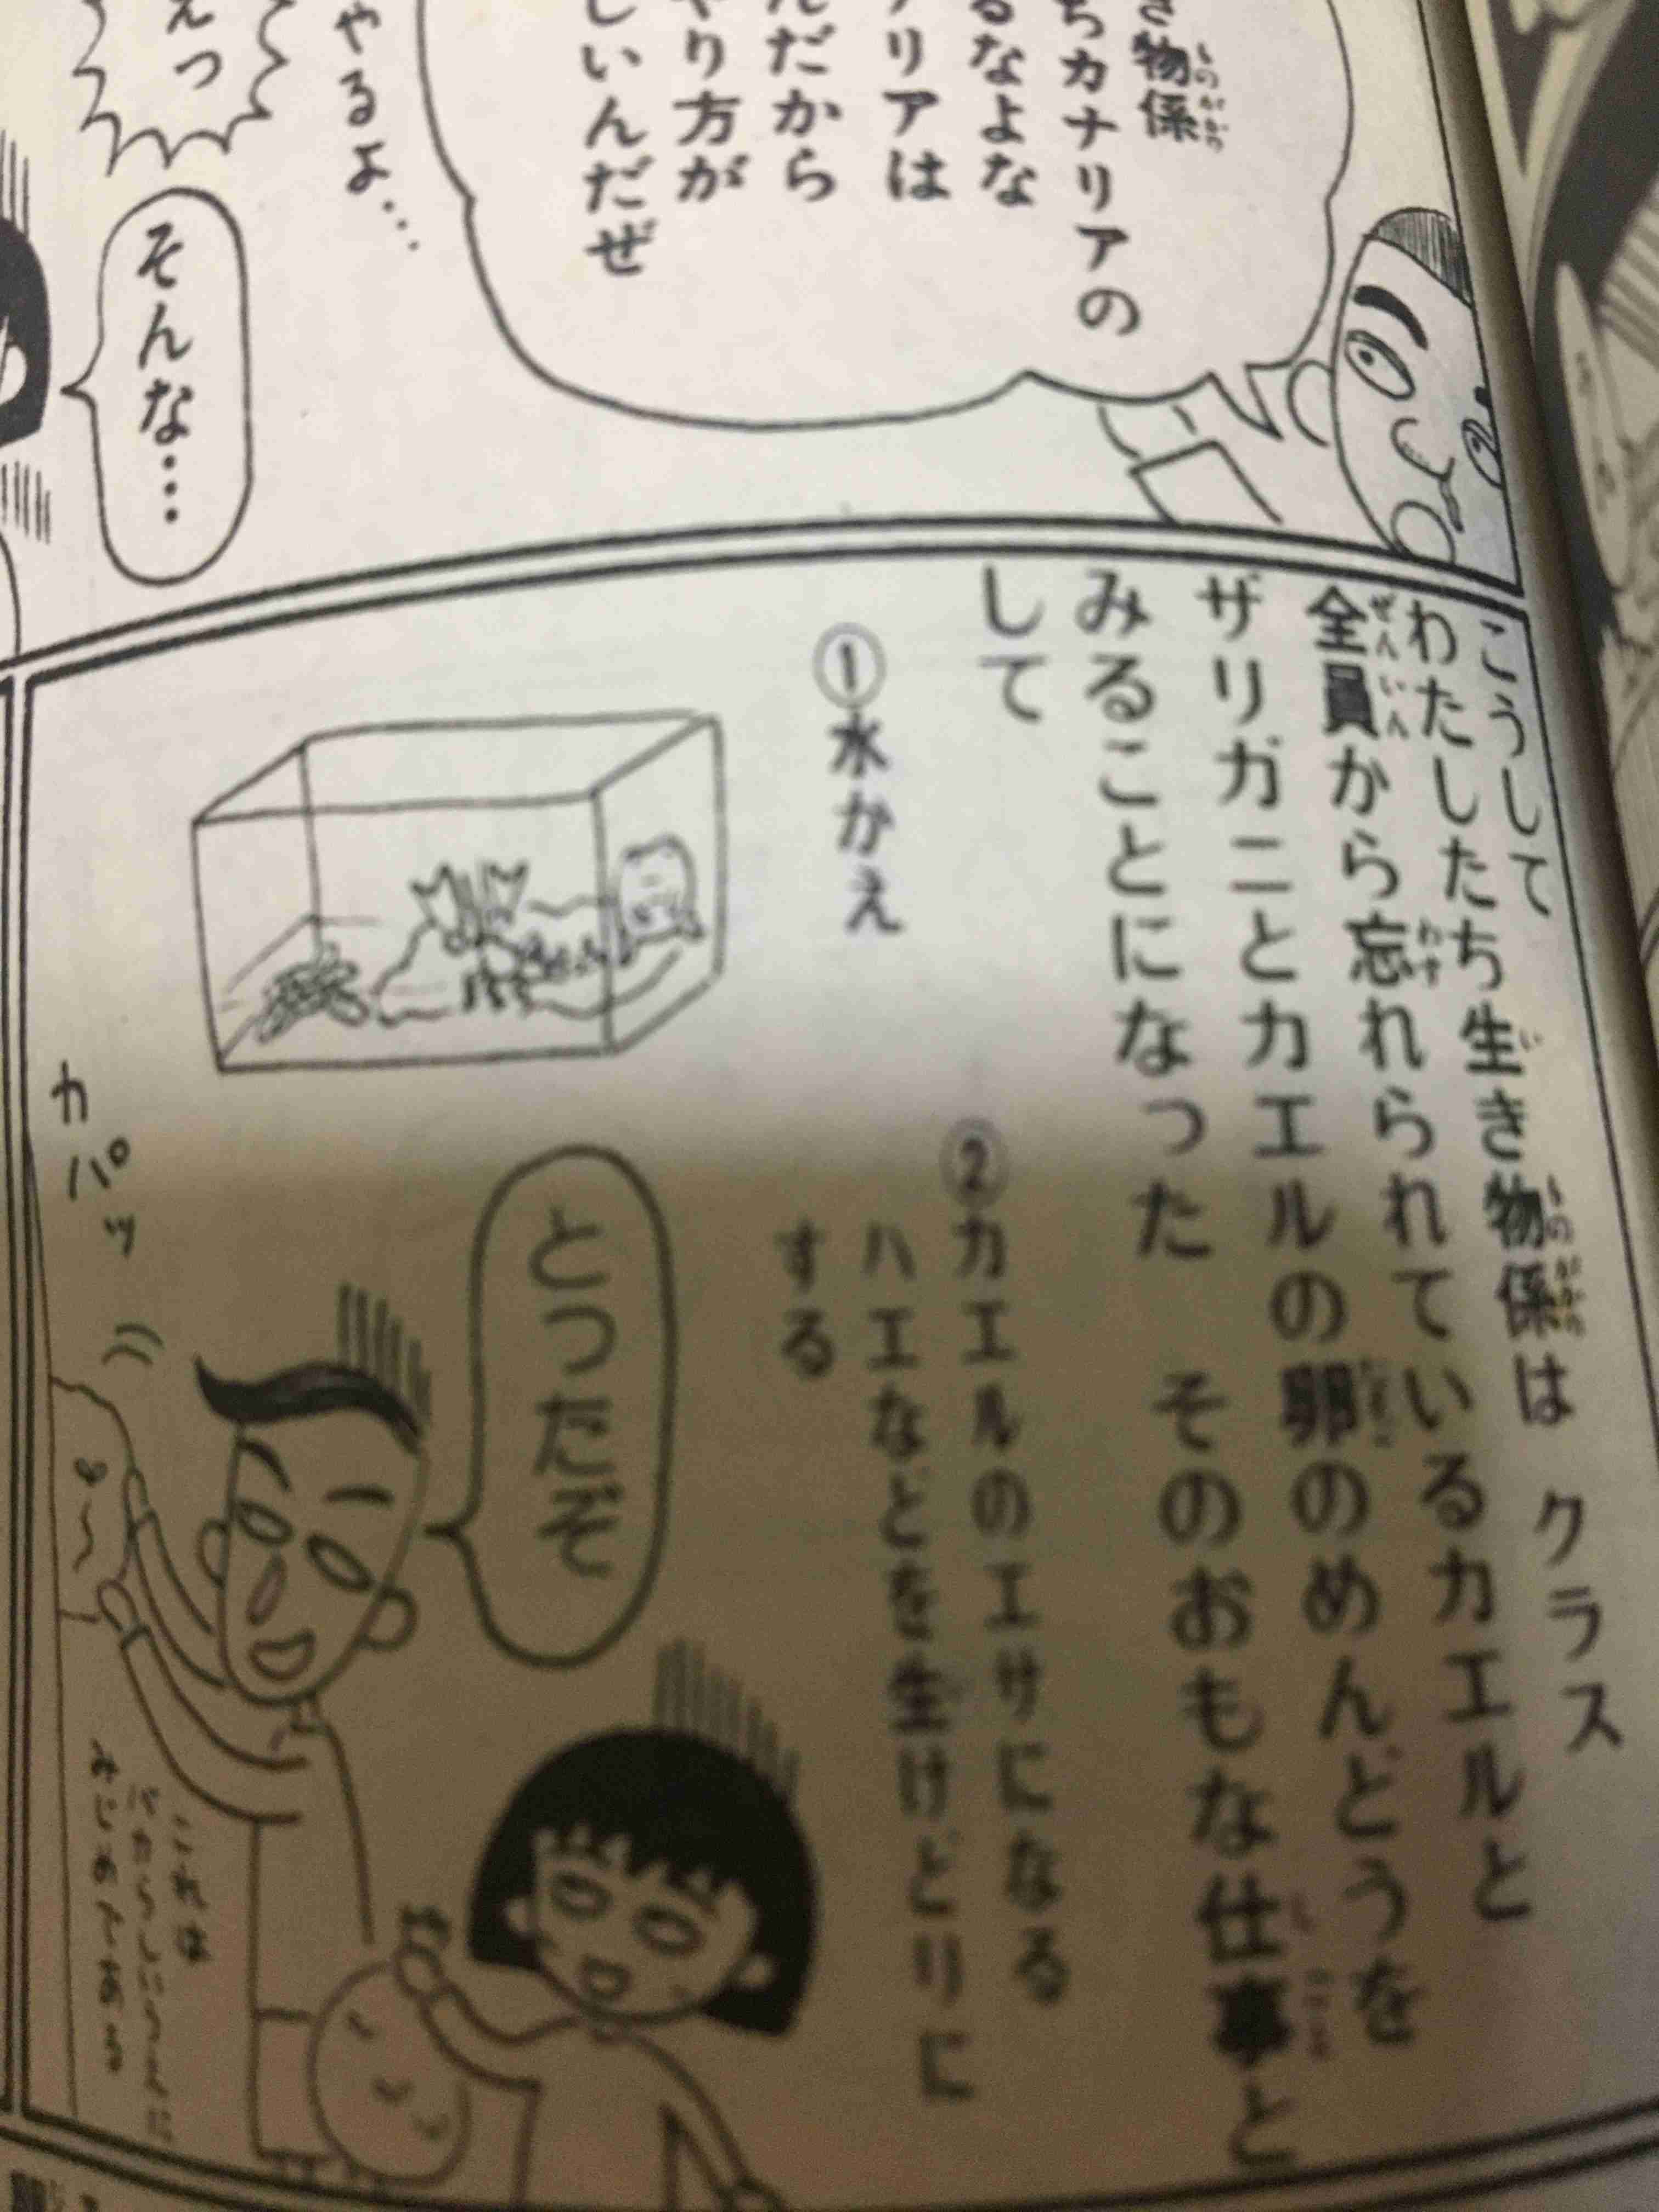 き物係
ちカナリアの
るなよな
ナリアは
んだから
やり方が
しいんだぜ
やるよ…
えっ
そんな…
こうして
わたしたち生き物係は クラス
全員から忘れられているカエルと
ザリガニとカエルの卵のめんどうを
みることになった そのおもな仕事と
して
①水かえ
②カエルのエサになる
ハエなどを生けどりに
する
とったぞ
カパッ
これは
バカらしいうえに
みじめである